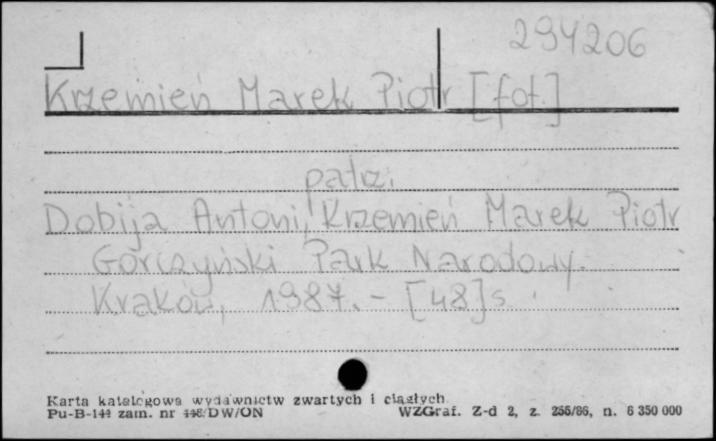 294206
Krzemień Marek Piotr [fot.]
patrz:
Dobija Antoni, Krzemień Marek Piotr
Gorczyński Park Narodowy.
Kraków, 1987. - [48]s.
Karta katalogowa wydawnictw zwartych i ciągłych
Pu-B-144 zam. nr 448/DW/ON WZGraf. Z-d 2, z. 255/86, n. 6 350 000